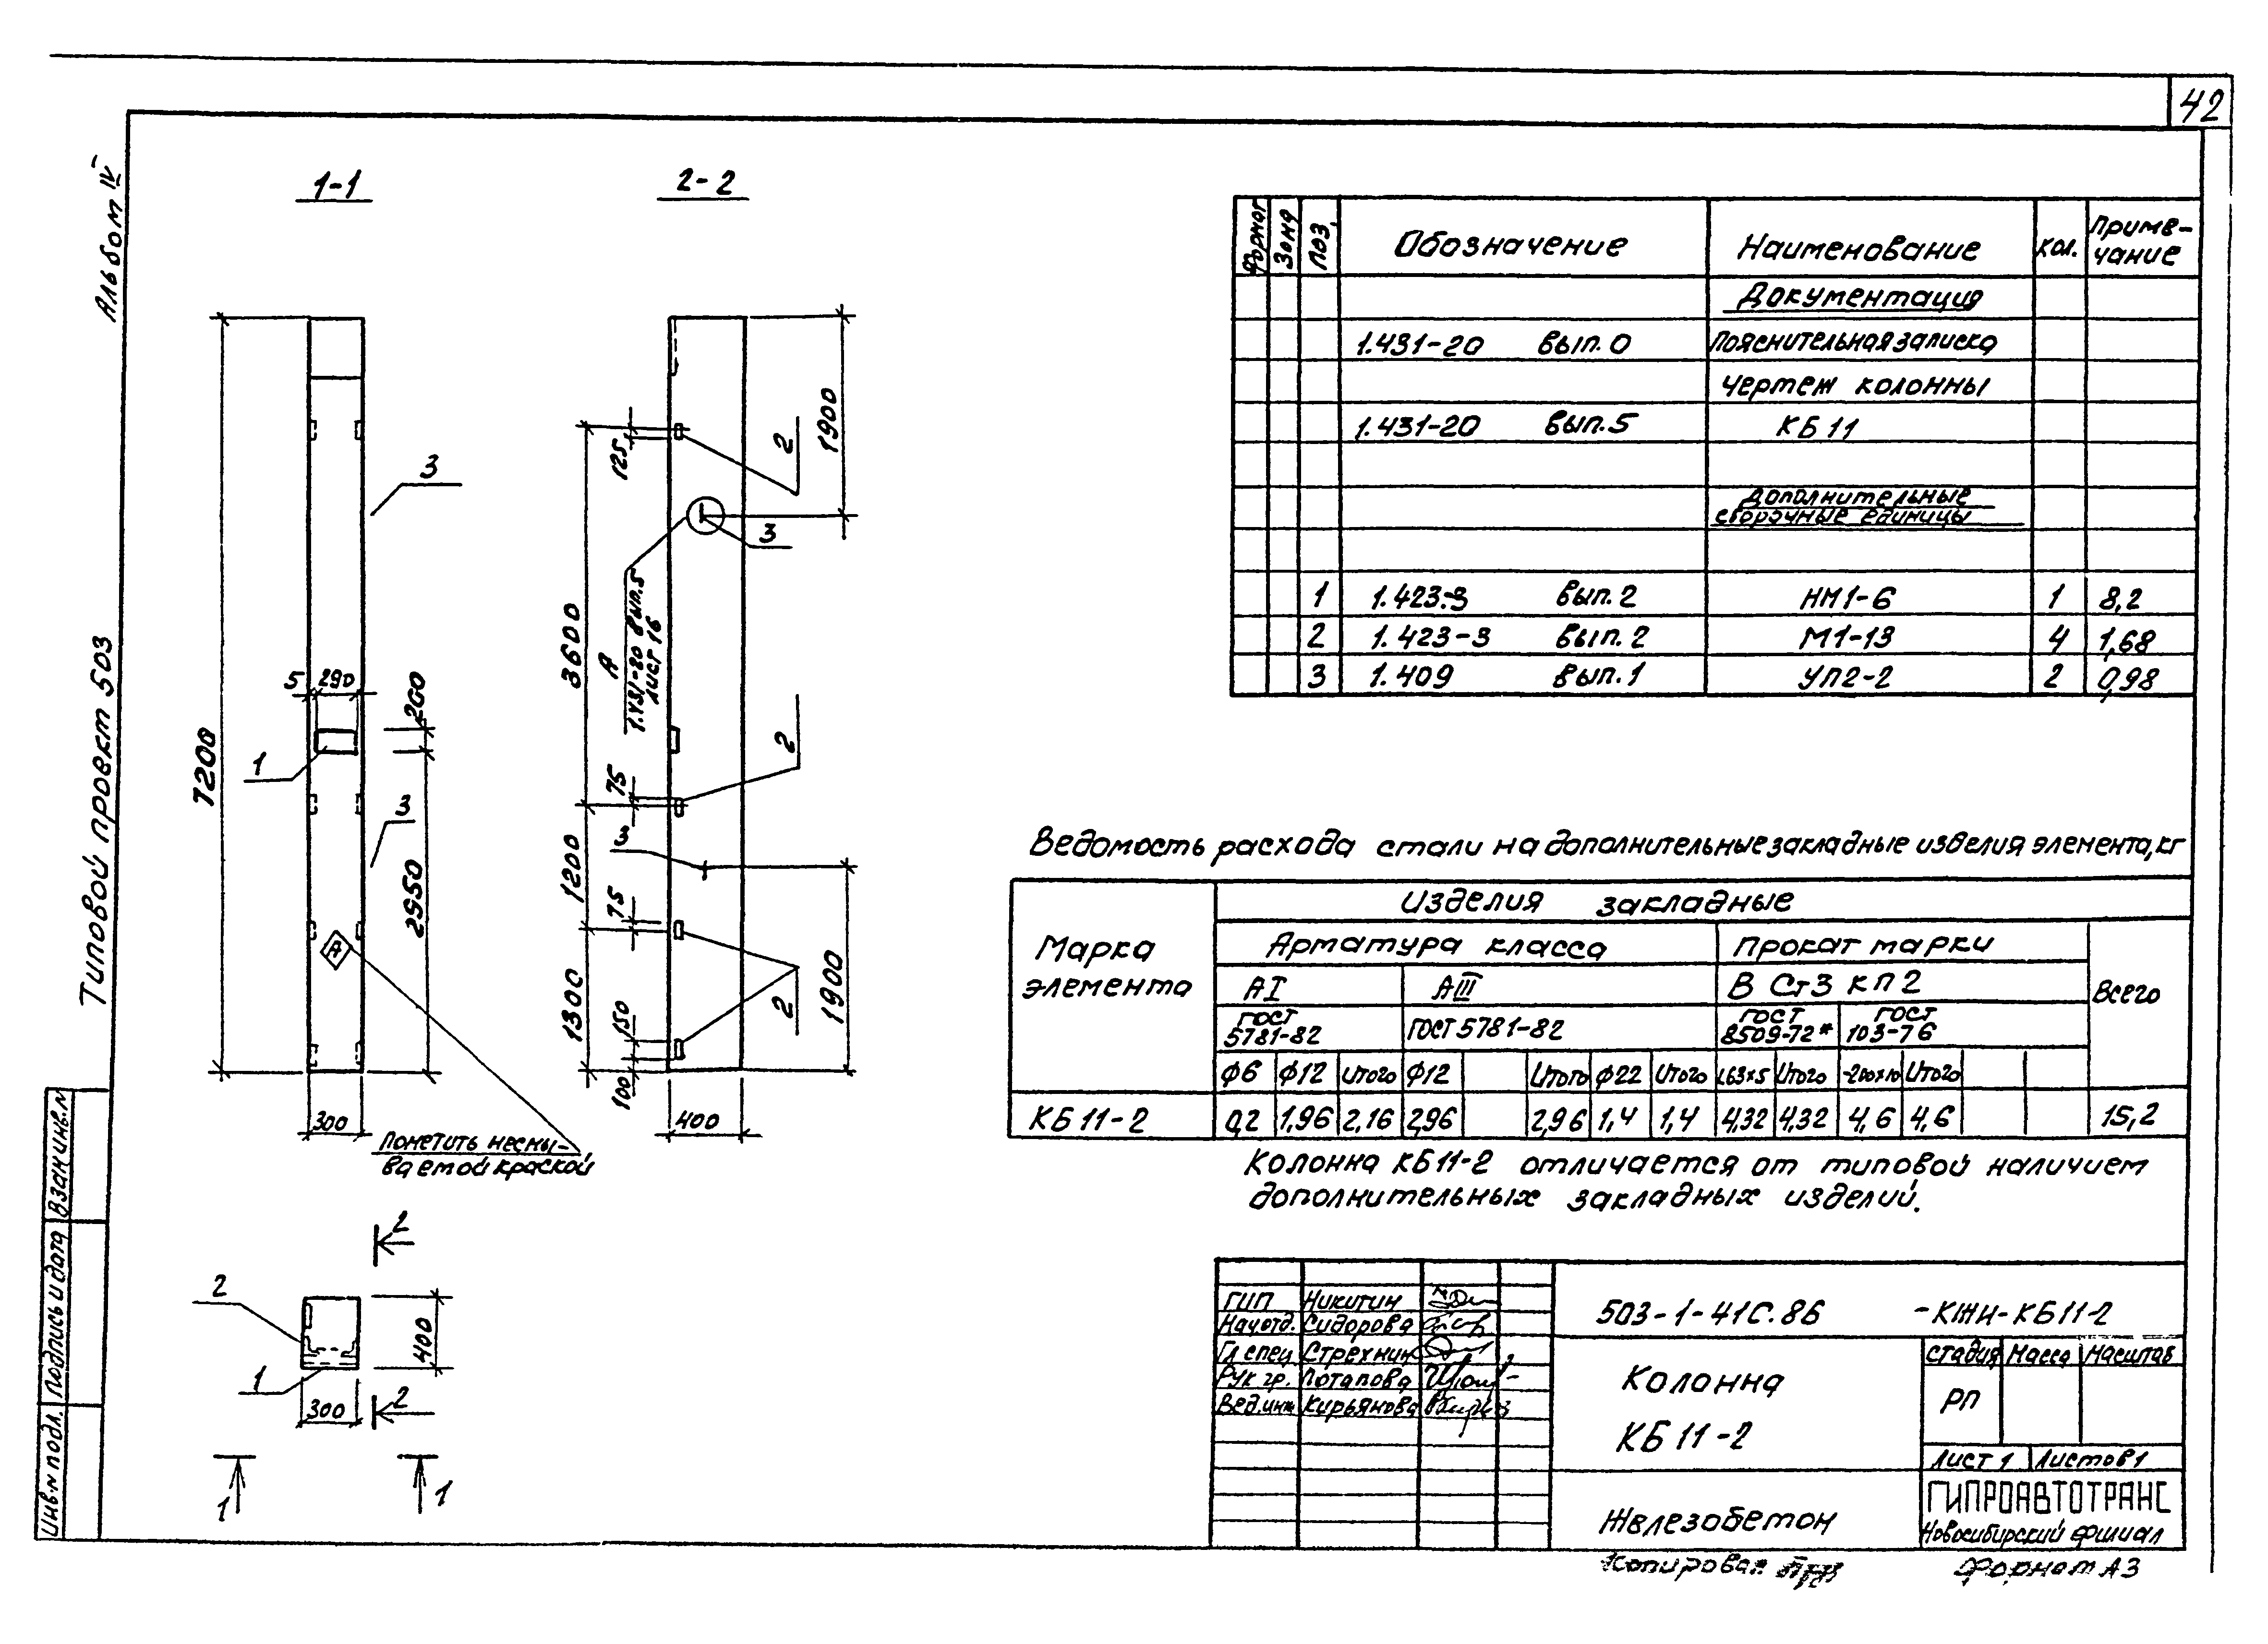 42
Альбом IV
Типовой проект 503
1-1
2-2
7200
5
290
200
2950
1
3
3
А
300
Пометить несмы-
ваемой краской
125
3600
1200
1300
75
75
150
100
А
1.431-20 вып.5
лист 16
2
3
2
3
2
1900
1900
400
2
2
1
300
400
2
1
1
Формат Зона Поз. Обозначение Наименование Кол. Приме-
чание
Документация
1.431-20 вып.0 Пояснительная записка
чертеж колонны
1.431-20 вып.5 КБ 11
Дополнительные
сборочные единицы
1 1.423-3 вып.2 НМ1-6 1 8,2
2 1.423-3 вып.2 М1-13 4 1,68
3 1.409 вып.1 УП2-2 2 0,98
Ведомость расхода стали на дополнительные закладные изделия элемента, кг
Марка
элемента
Изделия закладные
Арматура класса Прокат марки
АI АIII В Ст3 кп2 Всего
ГОСТ
5781-82
ГОСТ 5781-82
ГОСТ
8509-72*
ГОСТ
103-76
Ф6 Ф12 Итого Ф12 Итого Ф22 Итого L63×5 Итого -200×10 Итого
КБ 11-2 0,2 1,96 2,16 2,96 2,96 1,4 1,4 4,32 4,32 4,6 4,6 15,2
Колонна КБ11-2 отличается от типовой наличием
дополнительных закладных изделий.
ГИП Никитин
Нач.отд. Сидорова
Гл спец Стрехнин
Рук гр. Потапова
Вед.инж Кирьянова
503-1-41С.86 -КЖИ-КБ11-2
Колонна
КБ 11-2
Стадия Масса Масштаб
РП
Лист 1 Листов 1
Железобетон
ГИПРОАВТОТРАНС
Новосибирский филиал
Копировал
Формат А3
Инв.N подл. Подпись и дата Взам инв.N